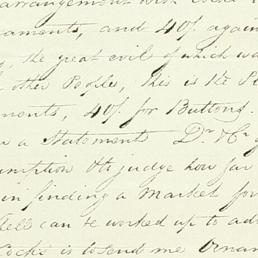 arrangement with
naments, and 40/. again
, the great evil of which wa
other People, this is the Se
ments, 40/. for Buttons.
a Statement Dr. & Cr
umption Ots judge how far
in finding a Market for
Shell can be worked up to ad
Cocks is to send me Ornam